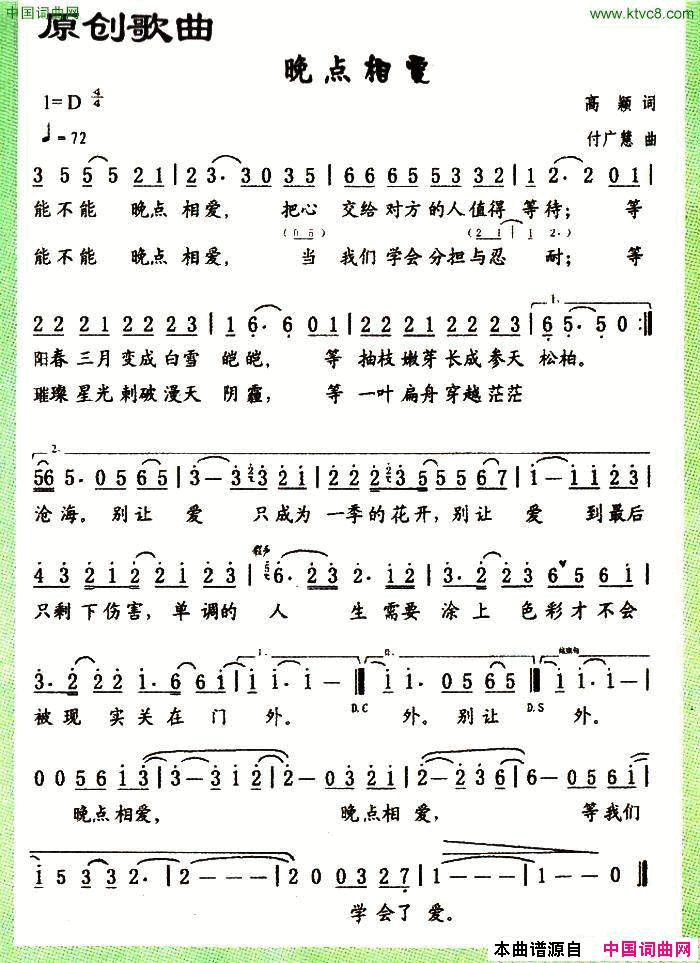 中国词曲网
www.ktvc8.com
原创歌曲
晚点相爱
1=D 4/4
高 颖 词
♩=72
付广慧 曲
3 5 5 5 2 1 | 2 3· 3 0 3 5 | 6 6 6 5 5 3 3 2 | 1 2· 2 0 1 |
能不能 晚点 相爱, 把心 交给 对方 的人 值得 等待; 等
(0 5) (2 1 | 1 2·)
能不能 晚点 相爱, 当 我们 学会 分担 与忍 耐; 等
2 2 2 2 1 2 2 2 2 3 | 1 6· 6 0 1 | 2 2 2 2 1 2 2 2 2 3 | 6 5· 5 0 :|
1.
阳春 三月 变成 白雪 皑皑, 等 抽枝 嫩芽 长成 参天 松柏。
璀璨 星光 刺破 漫天 阴霾, 等 一叶 扁舟 穿越 茫茫
2.
56 5· 0 5 6 5 | 1 - 3 3 2 1 | 2 2 2 3 5 5 5 6 7 | 1 - 1 1 2 3 |
沧海。别让 爱 只成为 一季的花开,别让 爱 到最后
4 3 2 1 2 2 1 2 3 | 6· 2 3 2· 1 2 | 3· 2 2 3 5 5 6 1 |
只剩 下伤害, 单调的 人 生 需要 涂上 色彩才不会
3· 2 2 2 1· 6 6 1 | 1 1· 1 - | 1 1· 0 5 6 5 | 1 1· 1 - |
D.C
D.S
结束句
被现 实关在 门 外。 外。别让 外。
0 0 5 6 1 3 | 3 - 3 3 1 | 2 - 0 3 2 1 | 2 - 2 3 6 | 2 - 0 5 6 1 |
晚点相爱, 晚点相 爱, 等我们
1 5 3 3 2· | 1 - 1 - | 2 0 0 3 2 7 | 1 - 1 - | 1 - 0 ‖
学会了 爱。
本曲谱源自
中国词曲网